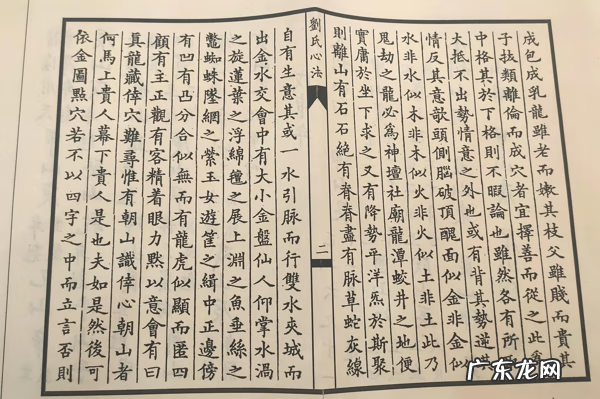 成包成乳龍雖老而嫩其枝父雖賤而貴其
子拔類離倫而成穴者宜擇善而從之此
中格其於丁格則不暇論也雖然各有所
大抵不出勢情意之外也或有背其勢逆
情反其意歌頭側腦破頂醜面似金非金似
水非水似木非木似火非火似土非土此乃
鬼劫之龍必為神壇社廟龍潭蛟井之地便
實庸於坐下求之又有降勢平洋炁於斯聚
則離山有石石絕有脊脊盡有脈草蛇灰線
劉氏心法
二
自有生意其或一水引脈而行雙水夾城而
出金水交會中有大小金盤仙人仰掌水渦
之旋蓮葉之浮綿氊之展上淵之魚垂絲之
鱉蜘蛛墜網之縈玉女遊筐之緝中正邊傍
有凹有凸分合似無而有龍虎似顯而匿四
顧有主正觀有客精着眼力黙以意會有曰
真龍藏倖穴難尋惟有朝山識倖心朝山者
何馬上貴人幕下貴人是也夫如是然後可
依金圖點穴若不以四字之中而立言否則
广东龙网